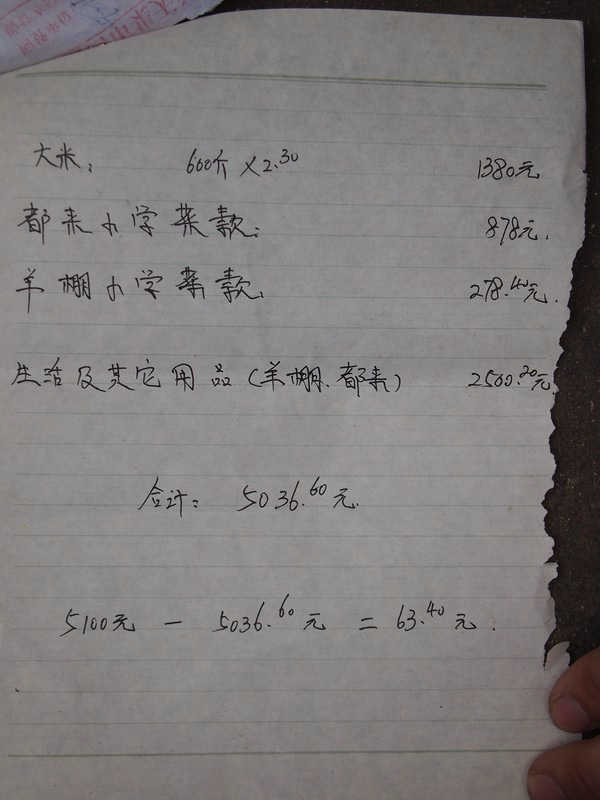 大米: 600斤×2.30 1380元
都来小学菜款: 878元.
羊棚小学菜款: 278.40元.
生活及其它用品(羊棚.都来) 2500.20元
合计: 5036.60元.
5100元 - 5036.60元 = 63.40元.